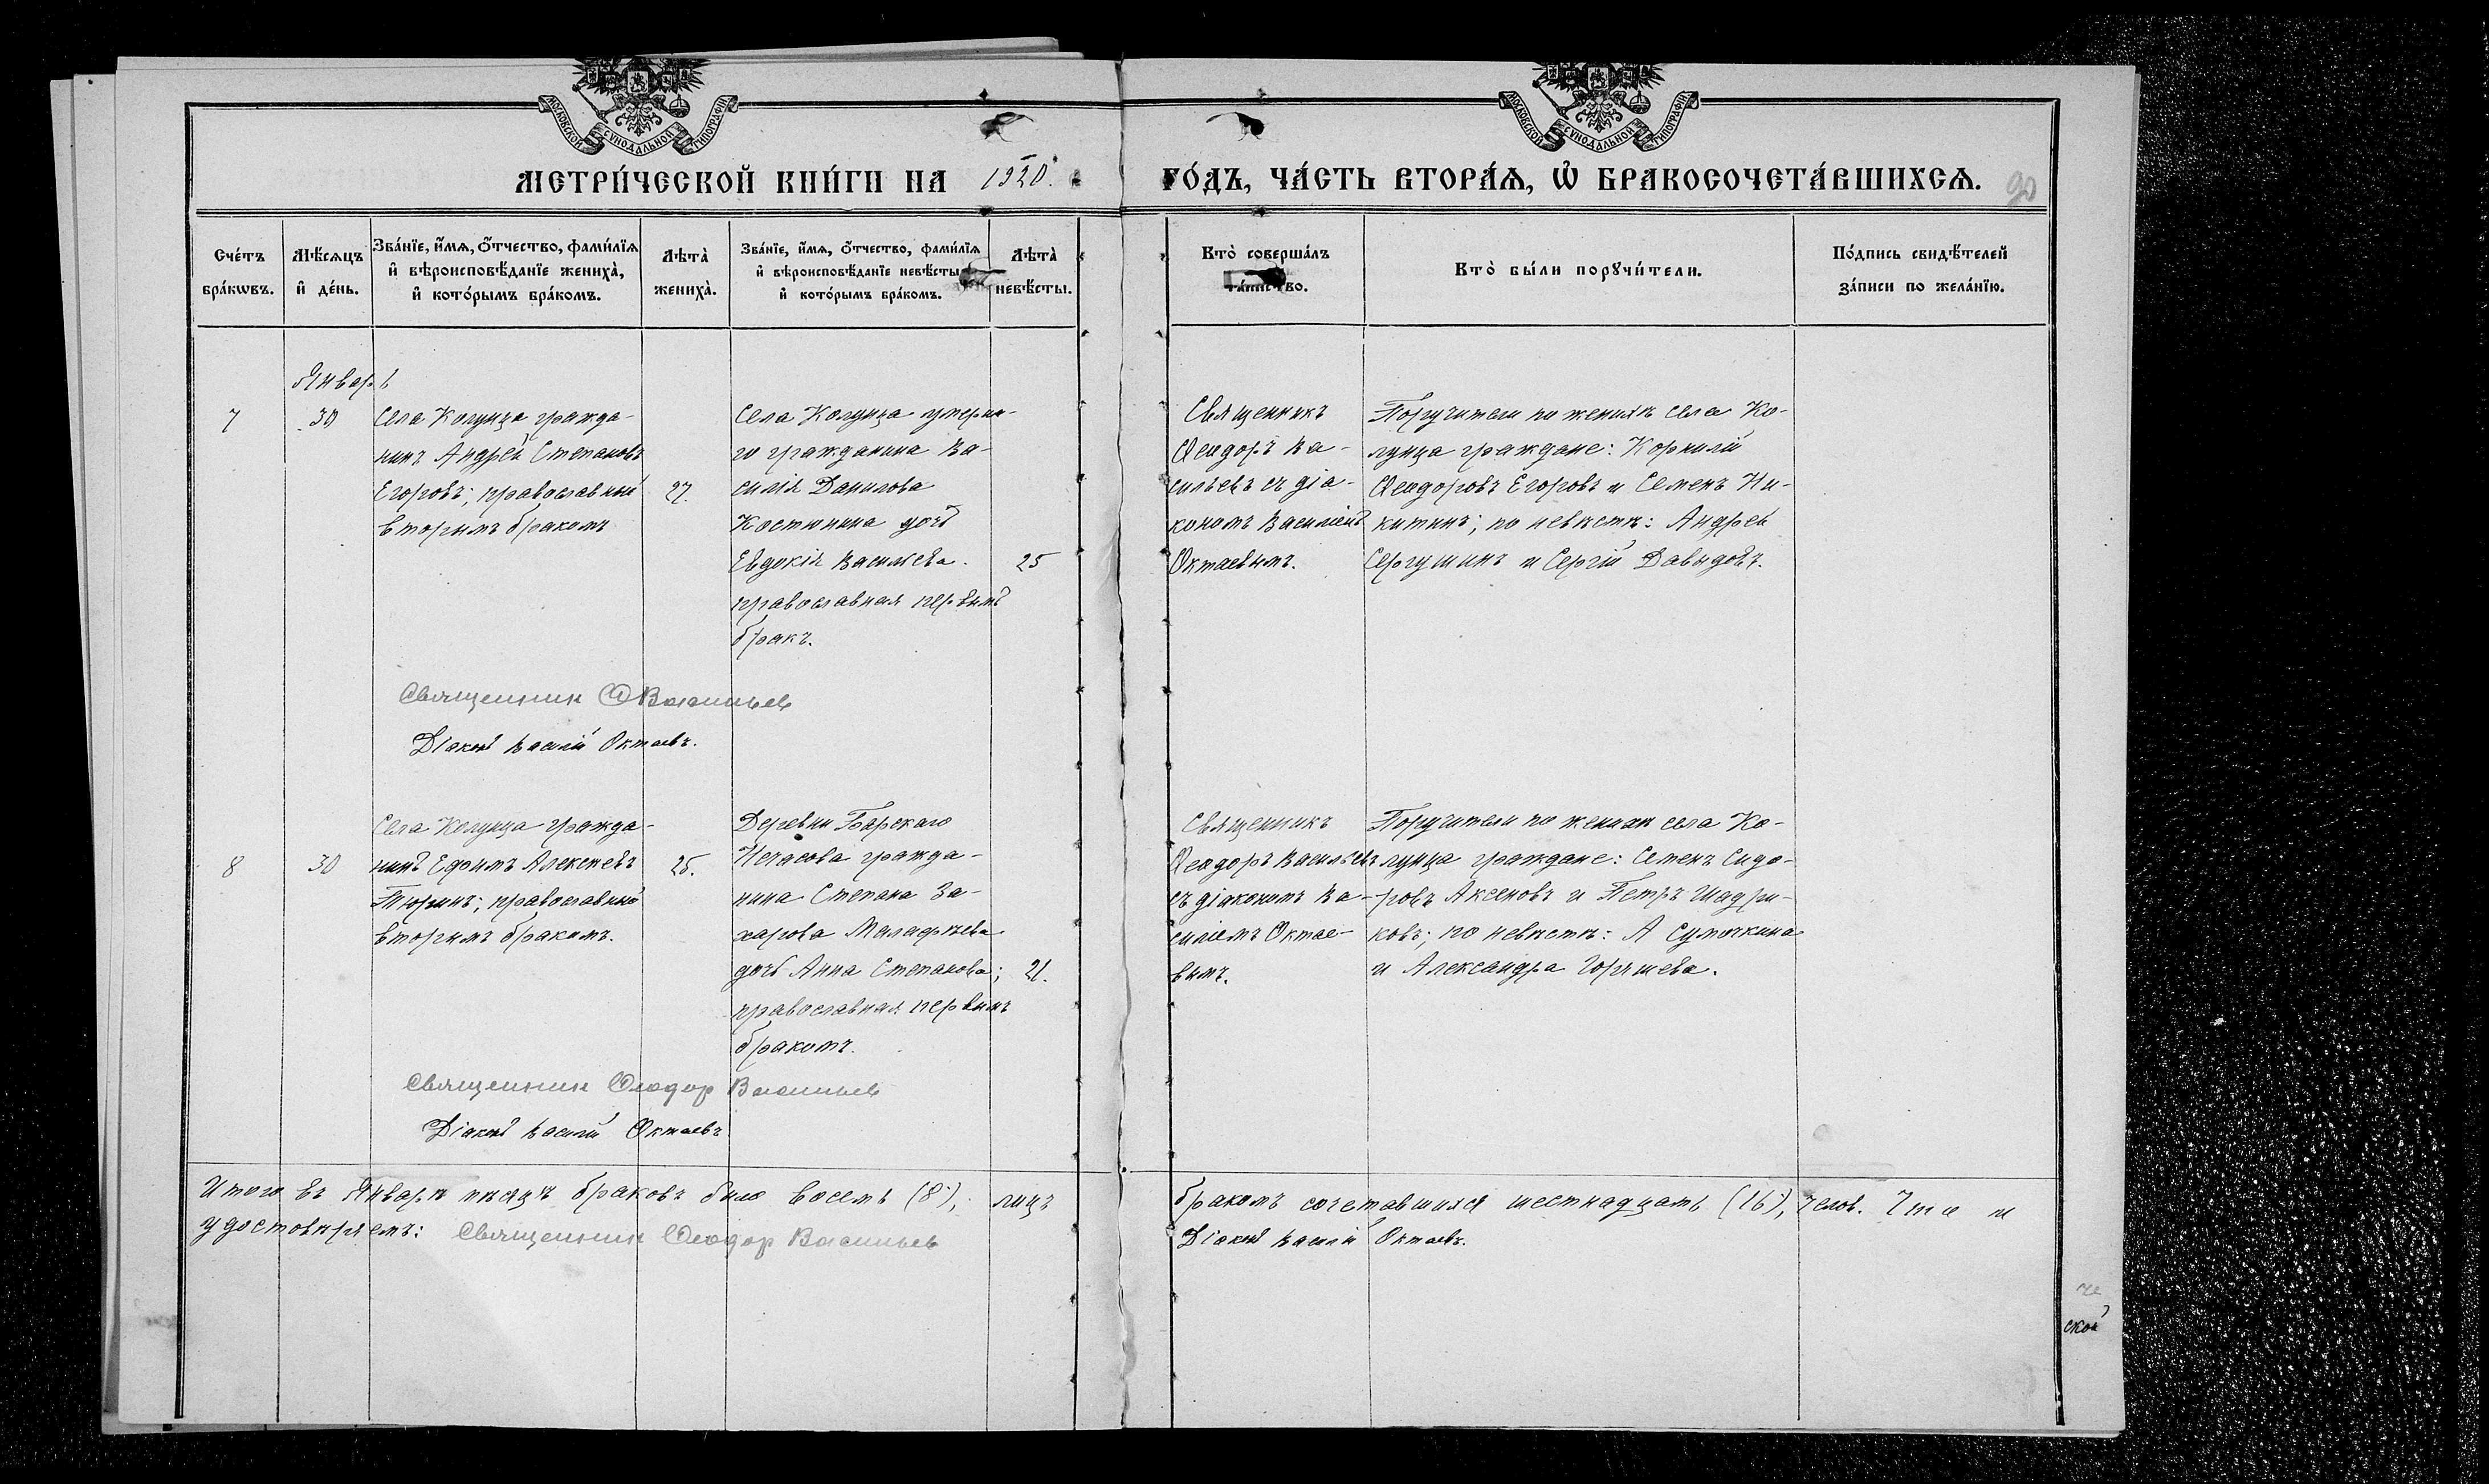 МОСКОВСКОЙ СУНОДАЛЬНОЙ ТИПОГРАФІИ
МОСКОВСКОЙ СУНОДАЛЬНОЙ ТИПОГРАФІИ
МЕТРИ́ЧЕСКОЙ КНИ́ГИ НА 1920.
ГО́ДЪ, ЧА́СТЬ ВТОРА́Ѧ, Ѡ҆ БРАКОСОЧЕТА́ВШИХСѦ.
90
Сче́тъ бра́кѡвъ.
Мѣ́сѧцъ и҆ де́нь.
Зва́нїе, и҆́мѧ, ѻ҆́тчество, фами́лїѧ
и҆ вѣроисповѣ́данїе жениха̀,
и҆ кото́рымъ бра́комъ.
Лѣта̀ жениха̀.
Зва́нїе, и҆́мѧ, ѻ҆́тчество, фами́лїѧ
и҆ вѣроисповѣ́данїе невѣ́сты
и҆ кото́рымъ бра́комъ.
Лѣта̀ невѣ́сты.
Кто̀ соверша́лъ
та́инство.
Кто̀ бы́ли порꙋчи́тели.
По́дпись свидѣ́телей
за́писи по жела́нїю.
Январь
7
30
Села Колунца гражда-
нинъ Андрей Степановъ
Егоровъ; православный
вторымъ бракомъ
27.
Села Колунца умерша-
го гражданина Ва-
силія Данилова
Костюнина дочь
Евдокія Васильева.
православная первымъ
бракъ.
25
Священникъ
Ѳеодоръ Ва-
сильевъ съ діа-
кономъ Василіемъ
Октаевымъ.
Поручители по женихѣ села Ко-
лунца граждане: Корнилій
Ѳеодоровъ Егоровъ и Семенъ Ни-
китинъ; по невѣстѣ: Андрей
Сергушинъ и Сергій Давыдовъ.
Священник Ѳ Васильев
Діаконъ Василій Октаевъ.
8
30
Села Колунца гражда-
нинъ Ефимъ Алексѣевъ
Тюринъ; православный
вторымъ бракомъ.
25.
Деревни Барскаго
Нечасова гражда-
нина Степана За-
харова Маладѣева
дочь Анна Степанова;
православная первымъ
бракомъ.
21.
Священникъ
Ѳеодоръ Васильевъ
съ діакономъ Ва-
силіемъ Октае-
вымъ.
Поручители по женихѣ села Ко-
лунца граждане: Семенъ Сидо-
ровъ Аксеновъ и Петръ Шадри-
ковъ; по невѣстѣ: А Сумочкина
и Александра
Священник Ѳеодор Васильев
Діаконъ Василій Октаевъ
Итого въ Январѣ мѣсяцѣ браковъ было восемь (8); лицъ
бракомъ сочетавшихся шестнадцать (16), челов. Что и
удостовѣряемъ: Священник Ѳеодор Васильев
Діаконъ Василій Октаевъ.
че
ской